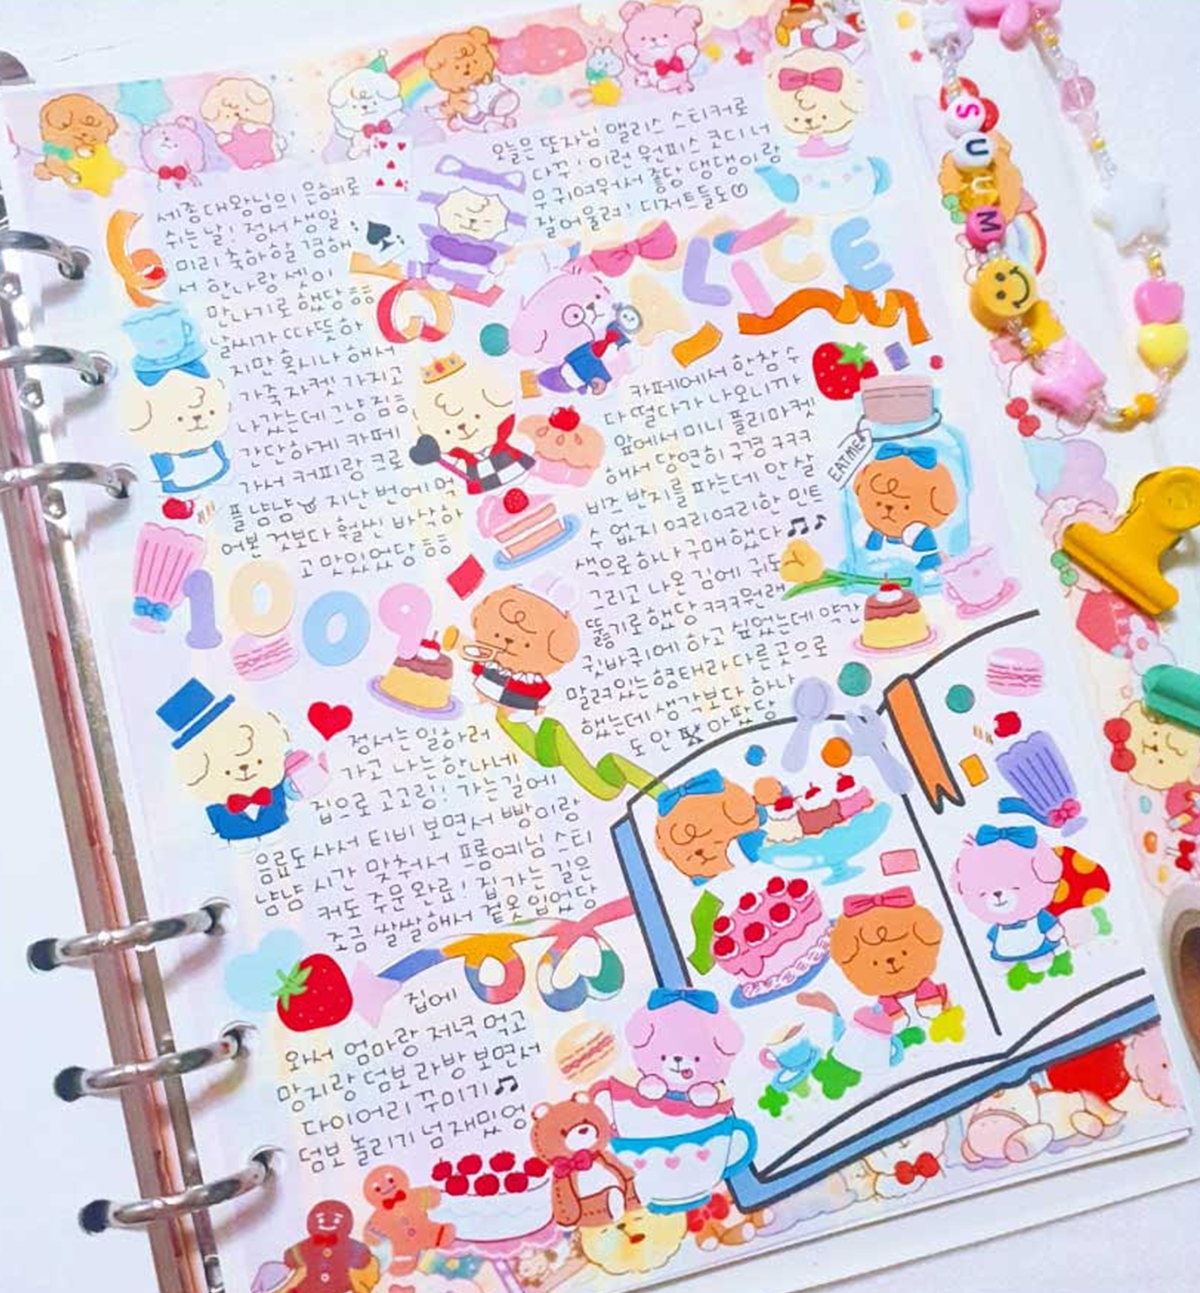 오늘은 또자님 앨리스 스티커로
다꾸! 이런 원피스 코디 너
무 귀여워서 좋당 댕댕이랑
잘 어울려! 디저트들도♡
ALICE
세종대왕님의 은혜로
쉬는날! 정서 생일
미리 축하할 겸해
서 한나랑 셋이
만나기로 했당 ㅎㅎ
날씨가 따뜻하
지만 혹시나 해서
가죽자켓 가지고
나갔는데 그냥 짐ㅎ
간단하게 카페
가서 커피랑 크로
플 냠냠 지난번에 먹
어본 것보다 훨씬 바삭하
고 맛있었당 ㅎㅎ
카페에서 한참 수
다 떨다가 나오니까
앞에서 미니 플리마켓
해서 당연히 구경 ㅋㅋㅋ
비즈 반지를 파는데 안 살
수 없지 여리여리한 민트
색으로 하나 구매했다♫♪
그리고 나온 김에 귀도
뚫기로 했당 ㅋㅋㅋ원래
귓바퀴에 하고 싶었는데 약간
말려있는 형태라 다른 곳으로
했는데 생각보다 하나
도 안 아팠당
EAT ME♥
1009
정서는 일하러
가고 나는 한나네
집으로 고고링! 가는 길에
음료도 사서 티비 보면서 빵이랑
냠냠 시간 맞춰서 프롬예님 스티
커도 주문 완료! 집 가는 길은
조금 쌀쌀해서 겉옷 입었당
집에
와서 엄마랑 저녁 먹고
망지랑 덤보 라방 보면서
다이어리 꾸미기♫
덤보 놀리기 넘 재밌엉
SUUM